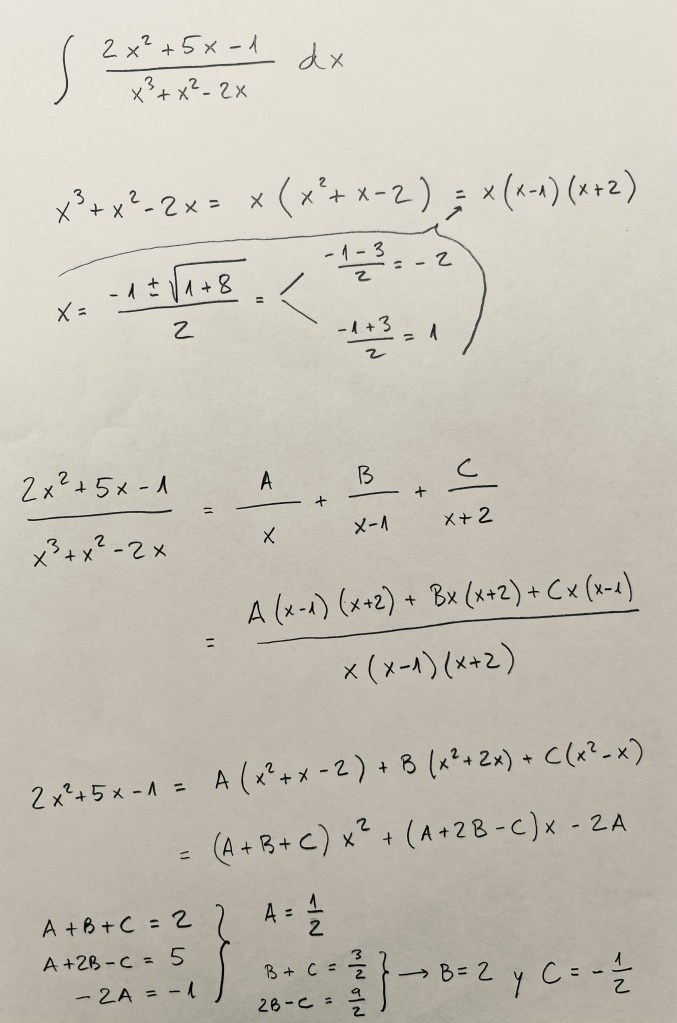 ∫ (2x² + 5x - 1)/(x³ + x² - 2x) dx
x³ + x² - 2x = x (x² + x - 2) = x (x-1) (x+2)
x = (-1 ± √(1+8))/2 = < (-1-3)/2 = -2
(-1+3)/2 = 1
(2x² + 5x - 1)/(x³ + x² - 2x) = A/x + B/(x-1) + C/(x+2)
= (A (x-1) (x+2) + Bx (x+2) + Cx (x-1))/(x (x-1) (x+2))
2x² + 5x - 1 = A (x² + x - 2) + B (x² + 2x) + C (x² - x)
= (A+B+C) x² + (A+2B-C) x - 2A
A + B + C = 2 } A = 1/2
A + 2B - C = 5
-2A = -1
B + C = 3/2 } → B = 2 y C = -1/2
2B - C = 9/2